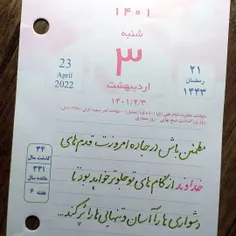 ۱۴۰۱
شنبه
۳
اردیبهشت
۱۴۰۱/۲/۳
23
April
2022
۲۱
رمضان
۱۴۴۳
۳۴
گذشت سال
۳۳۱
مانده سال
هفته ۶
مطمئن باش در جاده امروزت قدم‌های
خداوند از گام‌های تو جلوتر خواهد بود تا
دشواری‌ها را آسان و تنهایی‌ها را پر کند...